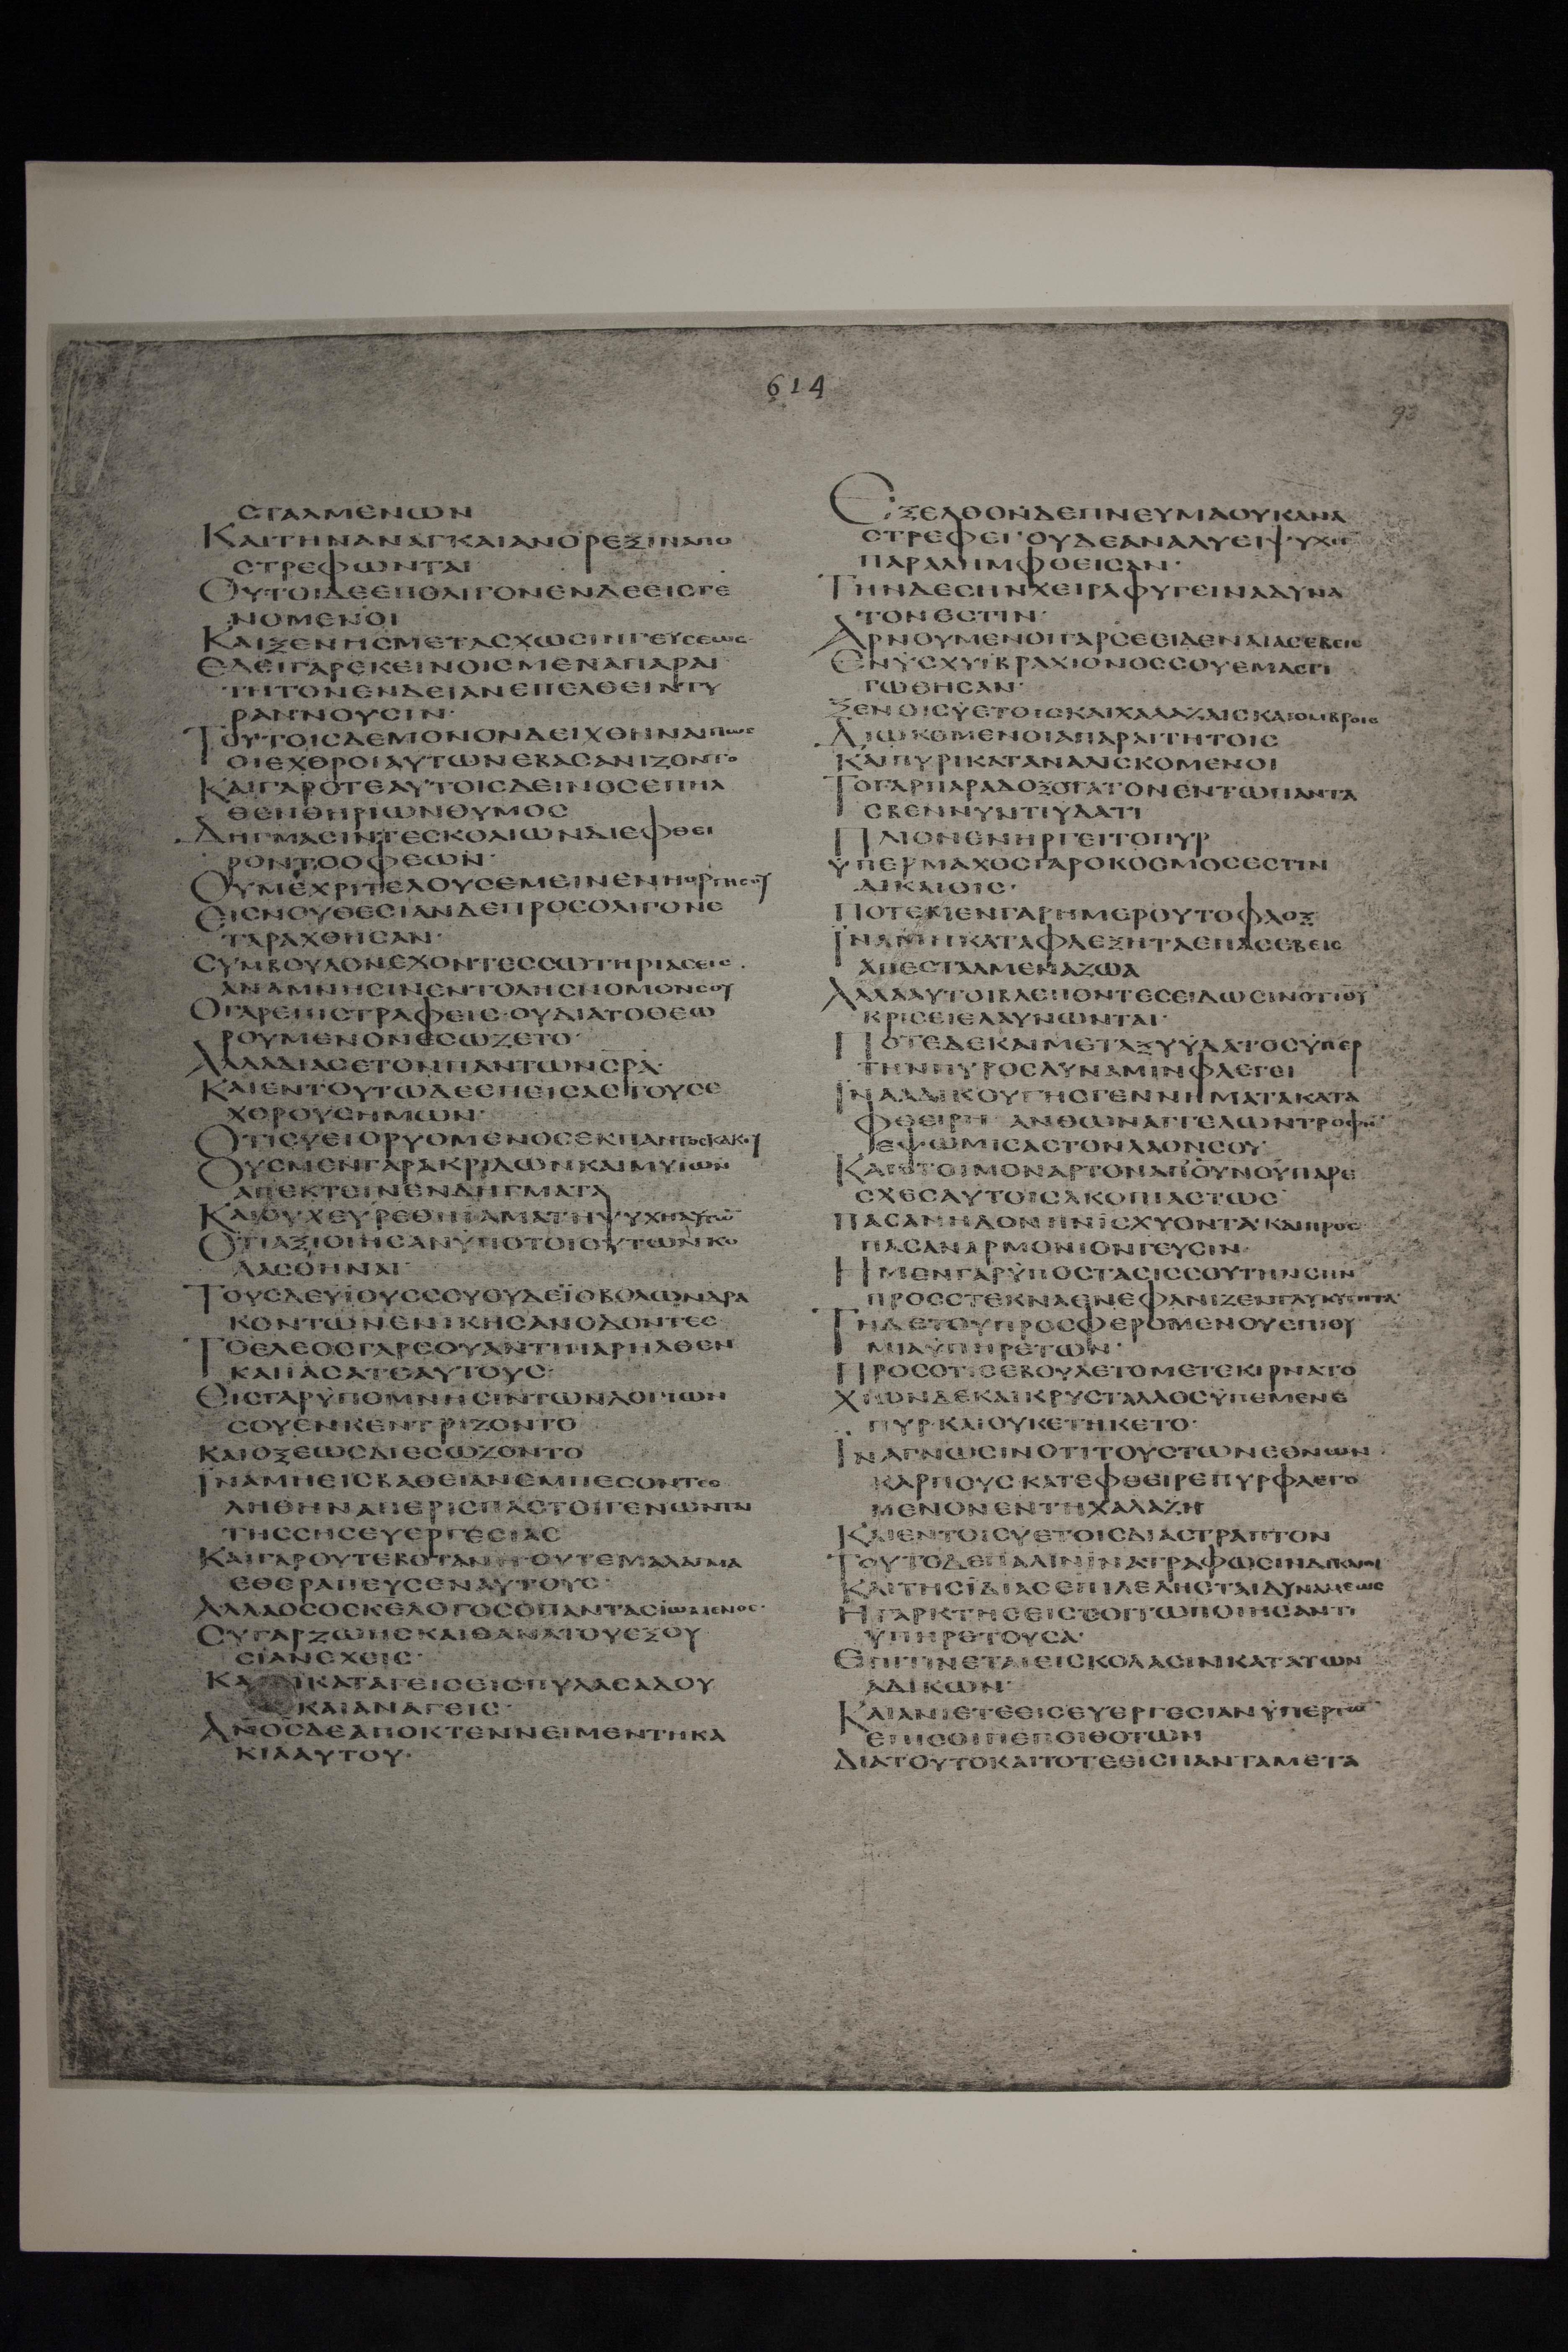 614
93
ϹΤΑΛΜΕΝΩΝ
ΚΑΙΤΗΝΑΝΑΓΚΑΙΑΝΟΡΕΞΙΝΑΠΟ
ϹΤΡΕΦΩΝΤΑΙ
ΟΥΤΟΙΔΕΕΠΟΛΙΓΟΝΕΝΔΕΕΙϹΓΕ
ΝΟΜΕΝΟΙ
ΚΑΙΞΕΝΗϹΜΕΤΑϹΧΩϹΙΝΓΕΥϹΕΩϹ·
ΕΔΕΙΓΑΡΕΚΕΙΝΟΙϹΜΕΝΑΠΑΡΑΙ
ΤΗΤΟΝΕΝΔΕΙΑΝΕΠΕΛΘΕΙΝΤΥ
ΡΑΝΝΟΥϹΙΝ·
ΤΟΥΤΟΙϹΔΕΜΟΝΟΝΔΕΙΧΘΗΝΑΙΠΩϹ
ΟΙΕΧΘΡΟΙΑΥΤΩΝΕΒΑϹΑΝΙΖΟΝΤΟ
ΚΑΙΓΑΡΟΤΕΑΥΤΟΙϹΔΕΙΝΟϹΕΠΗΛ
ΘΕΝΘΗΡΙΩΝΘΥΜΟϹ
ΔΗΓΜΑϹΙΝΤΕϹΚΟΛΙΩΝΔΙΕΦΘΕΙ
ΡΟΝΤΟΟΦΕΩΝ·
ΟΥΜΕΧΡΙΤΕΛΟΥϹΕΜΕΙΝΕΝΗΟΡΓΗϹΟΥ
ΕΙϹΝΟΥΘΕϹΙΑΝΔΕΠΡΟϹΟΛΙΓΟΝΕ
ΤΑΡΑΧΘΗϹΑΝ·
ϹΥΜΒΟΥΛΟΝΕΧΟΝΤΕϹϹΩΤΗΡΙΑϹΕΙϹ
ΑΝΑΜΝΗϹΙΝΕΝΤΟΛΗϹΝΟΜΟΝϹΟΥ
ΟΓΑΡΕΠΙϹΤΡΑΦΕΙϹ·ΟΥΔΙΑΤΟΘΕΩ
ΡΟΥΜΕΝΟΝΕϹΩΖΕΤΟ·
ΑΛΛΑΔΙΑϹΕΤΟΝΠΑΝΤΩΝϹΡΑ·
ΚΑΙΕΝΤΟΥΤΩΔΕΕΠΕΙϹΑϹΤΟΥϹΕ
ΧΘΡΟΥϹΗΜΩΝ·
ΟΤΙϹΥΕΙΟΡΥΟΜΕΝΟϹΕΚΠΑΝΤΟϹΚΑΚΟΥ
ΟΥϹΜΕΝΓΑΡΑΚΡΙΔΩΝΚΑΙΜΥΙΩΝ
ΑΠΕΚΤΕΙΝΕΝΔΗΓΜΑΤΑ
ΚΑΙΟΥΧΕΥΡΕΘΗΙΑΜΑΤΗΨΥΧΗΑΥΤΩ
ΟΤΙΑΞΙΟΙΗϹΑΝΫΠΟΤΟΙΟΥΤΩΝΚΟ
ΛΑϹΘΗΝΑΙ·
ΤΟΥϹΔΕΥΪΟΥϹϹΟΥΟΥΔΕΪΟΒΟΛΩΝΔΡΑ
ΚΟΝΤΩΝΕΝΙΚΗϹΑΝΟΔΟΝΤΕϹ
ΤΟΕΛΕΟϹΓΑΡϹΟΥΑΝΤΙΠΑΡΗΛΘΕΝ
ΚΑΙΙΑϹΑΤΕΑΥΤΟΥϹ·
ΕΙϹΓΑΡΫΠΟΜΝΗϹΙΝΤΩΝΛΟΓΙΩΝ
ϹΟΥΕΝΚΕΝΤΡΙΖΟΝΤΟ
ΚΑΙΟΞΕΩϹΔΙΕϹΩΖΟΝΤΟ
ΪΝΑΜΗΕΙϹΒΑΘΕΙΑΝΕΜΠΕϹΟΝΤΕϹ
ΛΗΘΗΝΑΠΕΡΙϹΠΑϹΤΟΙΓΕΝΩΝΤΑΙ
ΤΗϹϹΗϹΕΥΕΡΓΕϹΙΑϹ
ΚΑΙΓΑΡΟΥΤΕΒΟΤΑΝΗΟΥΤΕΜΑΛΑΓΜΑ
ΕΘΕΡΑΠΕΥϹΕΝΑΥΤΟΥϹ·
ΑΛΛΑΟϹΟϹΚΕΛΟΓΟϹΟΠΑΝΤΑϹΪΩΜΕΝΟϹ·
ϹΥΓΑΡΖΩΗϹΚΑΙΘΑΝΑΤΟΥΕΞΟΥ
ϹΙΑΝΕΧΕΙϹ·
ΚΑΙΚΑΤΑΓΕΙϹΕΙϹΠΥΛΑϹΑΔΟΥ
ΚΑΙΑΝΑΓΕΙϹ·
ΑΝΟϹΔΕΑΠΟΚΤΕΝΝΕΙΜΕΝΤΗΚΑ
ΚΙΑΑΥΤΟΥ·
ΕΞΕΛΘΟΝΔΕΠΝΕΥΜΑΟΥΚΑΝΑ
ϹΤΡΕΦΕΙ·ΟΥΔΕΑΝΑΛΥΕΙΨΥΧΗ
ΠΑΡΑΛΗΜΦΘΕΙϹΑΝ·
ΤΗΝΔΕϹΗΝΧΕΙΡΑΦΥΓΕΙΝΑΔΥΝΑ
ΤΟΝΕϹΤΙΝ·
ΑΡΝΟΥΜΕΝΟΙΓΑΡϹΕΕΙΔΕΝΑΙΑϹΕΒΕΙϹ
ΕΝΪϹΧΥΪΒΡΑΧΙΟΝΟϹϹΟΥΕΜΑϹΤΙ
ΓΩΘΗϹΑΝ·
ΞΕΝΟΙϹΫΕΤΟΙϹΚΑΙΧΑΛΑΖΑΙϹΚΑΙΟΜΒΡΟΙϹ
ΔΙΩΚΟΜΕΝΟΙΑΠΑΡΑΙΤΗΤΟΙϹ
ΚΑΙΠΥΡΙΚΑΤΑΝΑΛΙϹΚΟΜΕΝΟΙ
ΤΟΓΑΡΠΑΡΑΔΟΞΟΤΑΤΟΝΕΝΤΩΠΑΝΤΑ
ϹΒΕΝΝΥΝΤΙΥΔΑΤΙ
ΠΛΙΟΝΕΝΗΡΓΕΙΤΟΠΥΡ
ΫΠΕΡΜΑΧΟϹΓΑΡΟΚΟϹΜΟϹΕϹΤΙΝ
ΔΙΚΑΙΟΙϹ·
ΠΟΤΕΜΕΝΓΑΡΗΜΕΡΟΥΤΟΦΛΟΞ
ΪΝΑΜΗΚΑΤΑΦΛΕΞΗΤΑΕΠΑϹΕΒΕΙϹ
ΑΠΕϹΤΑΛΜΕΝΑΖΩΑ
ΑΛΛΑΥΤΟΙΒΛΕΠΟΝΤΕϹΕΙΔΩϹΙΝΟΤΙΘΥ
ΚΡΙϹΕΙΕΛΑΥΝΩΝΤΑΙ·
ΠΟΤΕΔΕΚΑΙΜΕΤΑΞΥΫΔΑΤΟϹΫΠΕΡ
ΤΗΝΠΥΡΟϹΔΥΝΑΜΙΝΦΛΕΓΕΙ
ΪΝΑΑΔΙΚΟΥΓΗϹΓΕΝΝΗΜΑΤΑΚΑΤΑ
ΦΘΕΙΡΗ ΑΝΘΩΝΑΓΓΕΛΩΝΤΡΟΦΗ
ΕΨΩΜΙϹΑϹΤΟΝΛΑΟΝϹΟΥ·
ΚΑΙΕΤΟΙΜΟΝΑΡΤΟΝΑΠΟΥΝΟΥΠΑΡΕ
ϹΧΕϹΑΥΤΟΙϹΑΚΟΠΙΑϹΤΩϹ
ΠΑϹΑΝΗΔΟΝΗΝΙϹΧΥΟΝΤΑ·ΚΑΙΠΡΟϹ
ΠΑϹΑΝΑΡΜΟΝΙΟΝΓΕΥϹΙΝ·
ΗΜΕΝΓΑΡΫΠΟϹΤΑϹΙϹϹΟΥΤΗΝϹΗΝ
ΠΡΟϹϹΤΕΚΝΑΕΝΕΦΑΝΙΖΕΝΓΛΥΚΥΤΗΤΑ
ΤΗΔΕΤΟΥΠΡΟϹΦΕΡΟΜΕΝΟΥΕΠΙΘΥ
ΜΙΑΫΠΗΡΕΤΩΝ·
ΠΡΟϹΟΤΙϹΕΒΟΥΛΕΤΟΜΕΤΕΚΙΡΝΑΤΟ
ΧΙΩΝΔΕΚΑΙΚΡΥϹΤΑΛΛΟϹΫΠΕΜΕΝΕ
ΠΥΡ·ΚΑΙΟΥΚΕΤΗΚΕΤΟ·
ΪΝΑΓΝΩϹΙΝΟΤΙΤΟΥϹΤΩΝΕΘΝΩΝ
ΚΑΡΠΟΥϹ·ΚΑΤΕΦΘΕΙΡΕΠΥΡΦΛΕΓΟ
ΜΕΝΟΝΕΝΤΗΧΑΛΑΖΗ
ΚΑΙΕΝΤΟΙϹΫΕΤΟΙϹΔΙΑϹΤΡΑΠΤΟΝ
ΤΟΥΤΟΔΕΠΑΛΙΝΙΝΑΤΡΑΦΩϹΙΝΔΙΚΑΙΟΙ
ΚΑΙΤΗϹΪΔΙΑϹΕΠΙΛΕΛΗϹΤΑΙΔΥΝΑΜΕΩϹ
ΗΓΑΡΚΤΗϹΕΙϹϹΟΙΤΩΠΟΙΗϹΑΝΤΙ
ΫΠΗΡΕΤΟΥϹΑ·
ΕΠΙΤΙΝΕΤΑΙΕΙϹΚΟΛΑϹΙΝΚΑΤΑΤΩΝ
ΑΔΙΚΩΝ·
ΚΑΙΑΝΙΕΤΕΕΙϹΕΥΕΡΓΕϹΙΑΝΫΠΕΡΤΩ
ΕΠΙϹΟΙΠΕΠΟΙΘΟΤΩΝ
ΔΙΑΤΟΥΤΟΚΑΙΤΟΤΕΕΙϹΠΑΝΤΑΜΕΤΑ